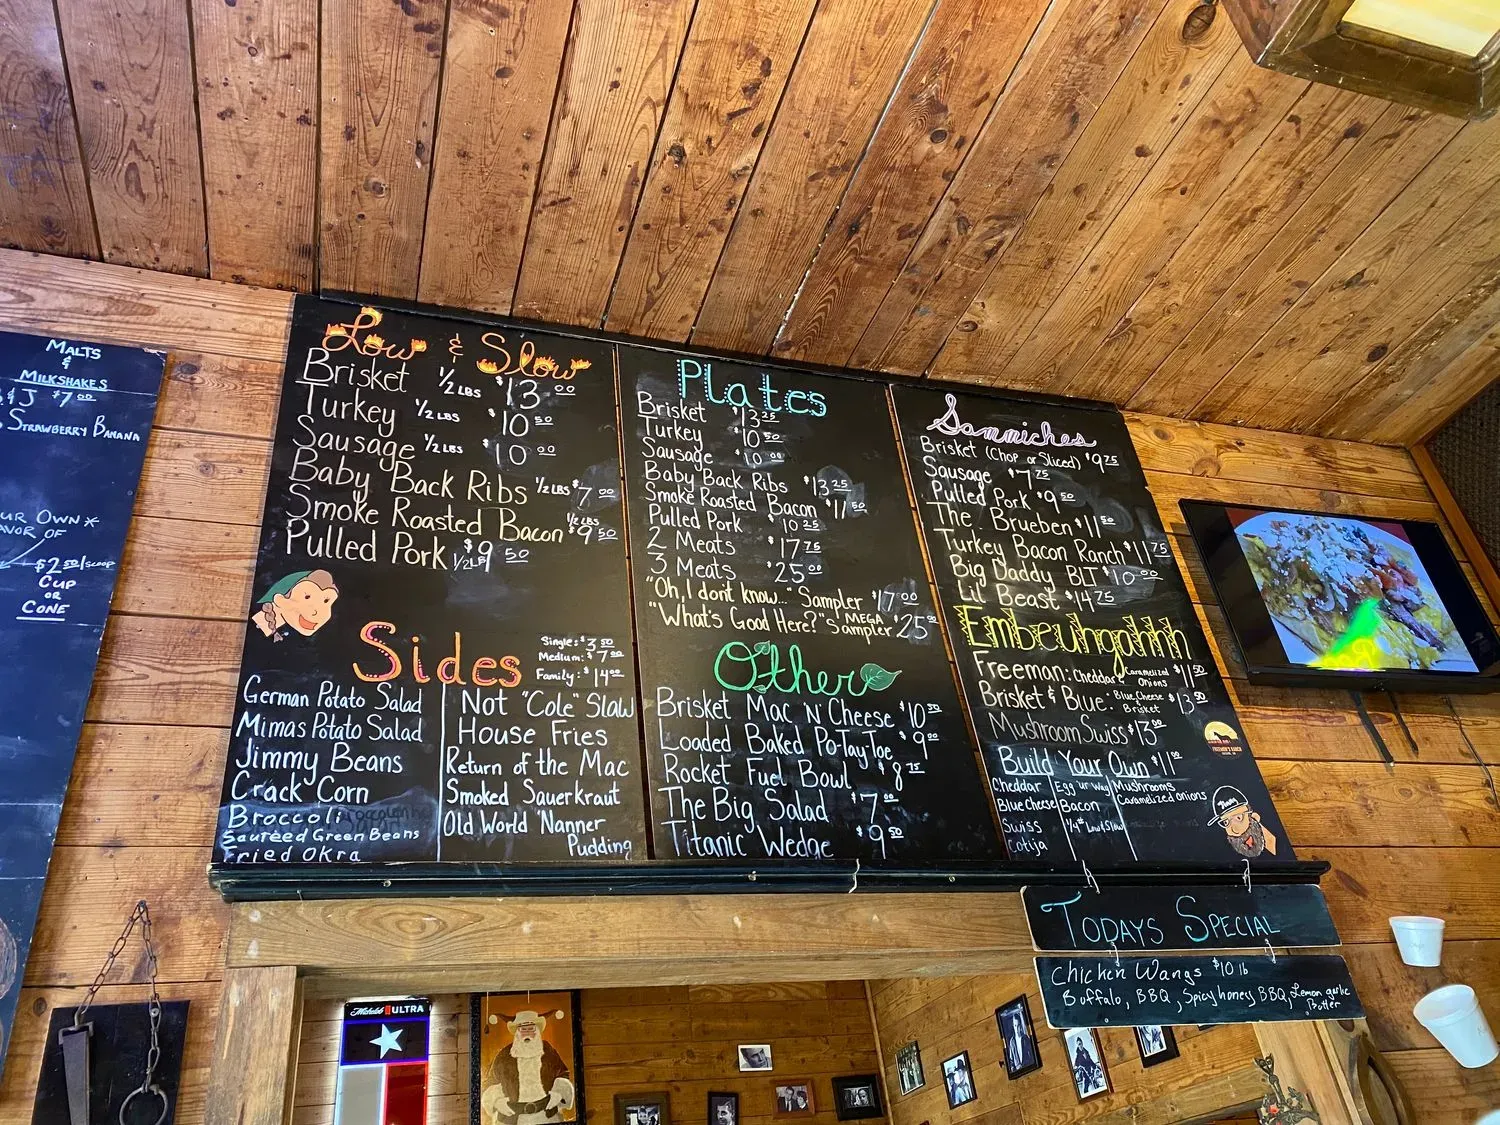 MALTS
&
MILKSHAKES
& J $7.00
STRAWBERRY BANANA
UR OWN *
AVOR OF
$2.50/SCOOP
CUP
OR
CONE
Low & Slow
Brisket 1/2 LBS $13.00
Turkey 1/2 LBS $10.50
Sausage 1/2 LBS $10.00
Baby Back Ribs 1/2 LBS $7.00
Smoke Roasted Bacon 1/2 LBS $9.50
Pulled Pork 1/2 LB $9.50
Sides
Single: $3.50
Medium: $7.00
Family: $14.00
German Potato Salad
Mimas Potato Salad
Jimmy Beans
Crack Corn
Broccoli
Sauteed Green Beans
Fried Okra
Not "Cole" Slaw
House Fries
Return of the Mac
Smoked Sauerkraut
Old World 'Nanner
Pudding
Plates
Brisket $13.25
Turkey $10.50
Sausage $10.00
Baby Back Ribs $13.25
Smoke Roasted Bacon $11.50
Pulled Pork $10.25
2 Meats $17.75
3 Meats $25.00
"Oh, I dont know..." Sampler $17.00
"What's Good Here?" MEGA Sampler $25.00
Other
Brisket Mac 'N' Cheese $10.50
Loaded Baked Po-Tay-Toe $9.00
Rocket Fuel Bowl $8.75
The Big Salad $7.00
Titanic Wedge $9.50
Sammiches
Brisket (Chop or Sliced) $9.75
Sausage $7.75
Pulled Pork $9.50
The Brueben $11.50
Turkey Bacon Ranch $11.75
Big Daddy BLT $10.00
Lil' Beast $14.75
Embeuhgahhh
Freeman: Cheddar Caramelized Onions $11.50
Brisket & Blue: Blue Cheese Brisket $13.50
Mushroom Swiss $13.00
Build Your Own $11.00
Cheddar
Blue Cheese
Swiss
Cotija
Egg ur Way
Bacon
Mushrooms
Caramelized Onions
TODAYS SPECIAL
Chicken Wangs $10 lb
Buffalo, BBQ, Spicy honey BBQ, Lemon garlic
Butter
Michelob ULTRA